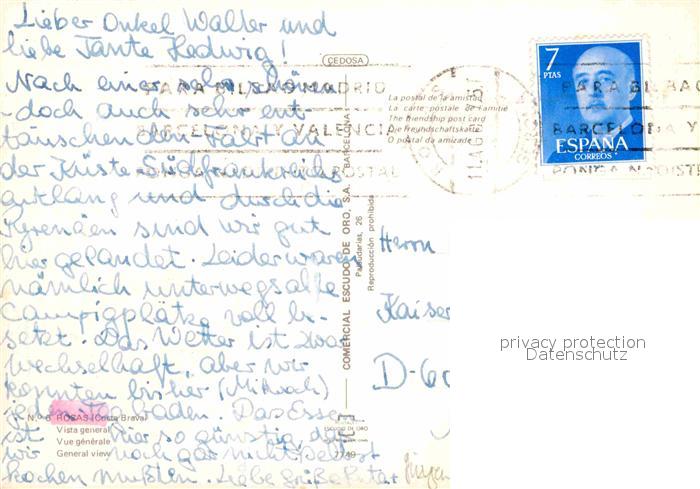 Lieber Onkel Walter und
liebe Tante Hedwig!
Nach einer sehr schönen
- doch auch sehr ent-
täuschenden Fahrt an
der Küste Südfrankreichs
entlang und durch die
Pyrenäen sind wir gut
hier gelandet. Leider waren
nämlich unterwegs alle
Campigplätze voll be-
setzt. Das Wetter ist zwar
wechselhaft, aber wir
konnten bisher (Mittwoch)
baden. Das Essen
ist hier so günstig, daß
wir noch gar nicht selbst
kochen mußten. Liebe Grüße
Jürgen
N.º 6 ROSAS (Costa Brava)
Vista general
Vue générale
General view
ESCUDO DE ORO
7749
CEDOSA
COMERCIAL ESCUDO DE ORO, S.A. BARCELONA
Palaudarias, 26
Reproducción prohibida
La postal de la amistad
La carte postale de l'amitié
The friendship post card
Die freundschaftskarte
O postal da amizade
PARA BILBAO MADRID
BARCELONA Y VALENCIA
PONGA DISTRITO POSTAL
11 AG
7
PTAS
ESPAÑA
CORREOS
PARA BILBAO
BARCELONA Y
PONGA N DISTR
Herrn
Kaiser
D-60
privacy protection
Datenschutz